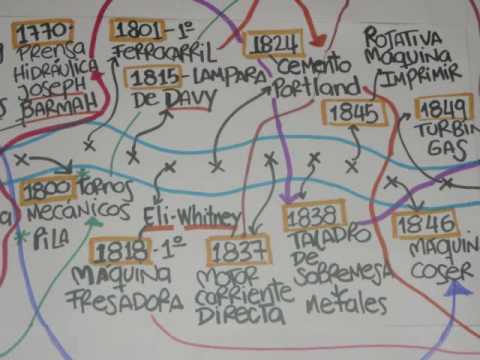 1770:
PRENSA
HIDRÁULICA
JOSEPH
BARMAH
1801-1º
FERROCARRIL
1815-LAMPARA
DE DAVY
1824
CEMENTO
PORTLAND
ROTATIVA
MAQUINA
IMPRIMIR
1845
1849
TURBIN
GAS
1800 TORNOS
MECÁNICOS
* PILA
Eli-Whitney
1818-1º
MAQUINA
FRESADORA
1837
MOTOR
CORRIENTE
DIRECTA
1838
TALADRO
DE
SOBREMESA
+
METALES
1846
MAQUIN
COSER